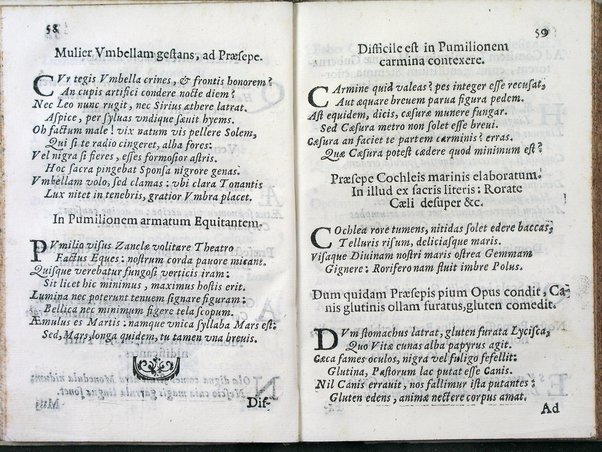 58
Mulier Vmbellam gestans, ad Præsepe.
CVr tegis Vmbella crines, & frontis honorem?
An cupis artifici condere nocte diem?
Nec Leo nunc rugit, nec Sirius æthere latrat.
Aspice, per syluas vndique sæuit hyems.
Oh factum male! vix natum vis pellere Solem,
Qui si te radio cingeret, alba fores:
Vel nigra si fieres, esses formosior astris.
Hoc sacra pingebat Sponsa nigrore genas.
Vmbellam volo, sed clamas: vbi clara Tonantis
Lux nitet in tenebris, gratior Vmbra placet.
In Pumilionem armatum Equitantem.
PVmilio visus Zanclæ volitare Theatro
Factus Eques: nostrum corda pauore micant.
Quisque verebatur fungosi verticis iram:
Sit licet hic minimus, maximus hostis erit.
Lumina nec poterunt tenuem signare figuram:
Bellica nec minimum figere tela scopum.
Æmulus es Martis: namque vnica syllaba Mars est:
Sed, Mars, longa quidem, tu tamen vna breuis.
Dif-
59
Difficile est in Pumilionem
carmina contexere.
CArmine quid valeas? pes integer esse recusat,
Aut æquare breuem parua figura pedem.
Ast equidem, dicis, cæsuræ munere fungar.
Sed Cæsura metro non solet esse breui.
Cæsura an faciet te partem carminis? erras.
Quæ Cæsura potest cædere quod minimum est?
Præsepe Cochleis marinis elaboratum.
In illud ex sacris literis: Rorate
Cæli desuper &c.
COchlea rore tumens, nitidas solet edere baccas,
Telluris risum, deliciasque maris.
Visaque Diuinam nostri maris ostrea Gemmam
Gignere: Rorifero nam fluit imbre Polus.
Dum quidam Præsepis pium Opus condit, Ca-
nis glutinis ollam furatus, gluten comedit.
DVm stomachus latrat, gluten furata Lycisca,
Quo Vitæ cunas alba papyrus agit.
Cæca fames oculos, nigra vel fuligo fefellit:
Glutina, Pastorum lac putat esse Canis.
Nil Canis errauit, nos fallimur ista putantes:
Gluten edens, animæ nectere corpus amat.
Ad